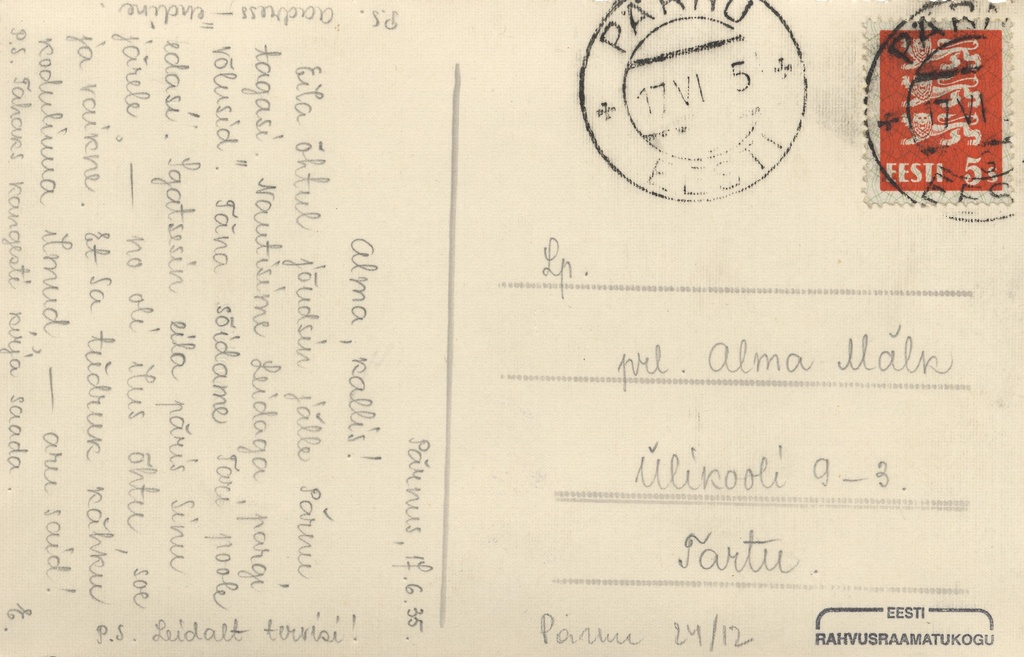 Pärnus, 17.6.35.
Alma, kallis!
Eila õhtul jõudsin jälle Pärnu
tagasi. Nautisime Leidaga pargi
võlusid". Täna sõidame Tori poole
edasi. Igatsesin eila päris Sinu
järele — no oli ilus õhtu, soe
ja vaikne. Et Sa tüdruk kähku
kodulinna ilmud, — aru said!
P.S. Tahaks kangesti kirja saada.
P.S. Leidalt tervisi!
P.S. "aadress" – "endine".
PÄRNU
17 VI 5
EESTI
PÄR
17 VI
EESTI 5
Lp.
prl. Alma Mälk
Ülikooli 9–3.
Tartu.
Pärnu 24/12
EESTI
RAHVUSRAAMATUKOGU